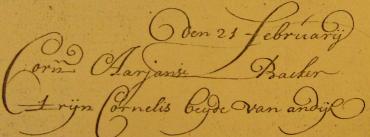 den 21 februarij
Corn Aarjans Backer
Trijn Cornelis beyde van andijk